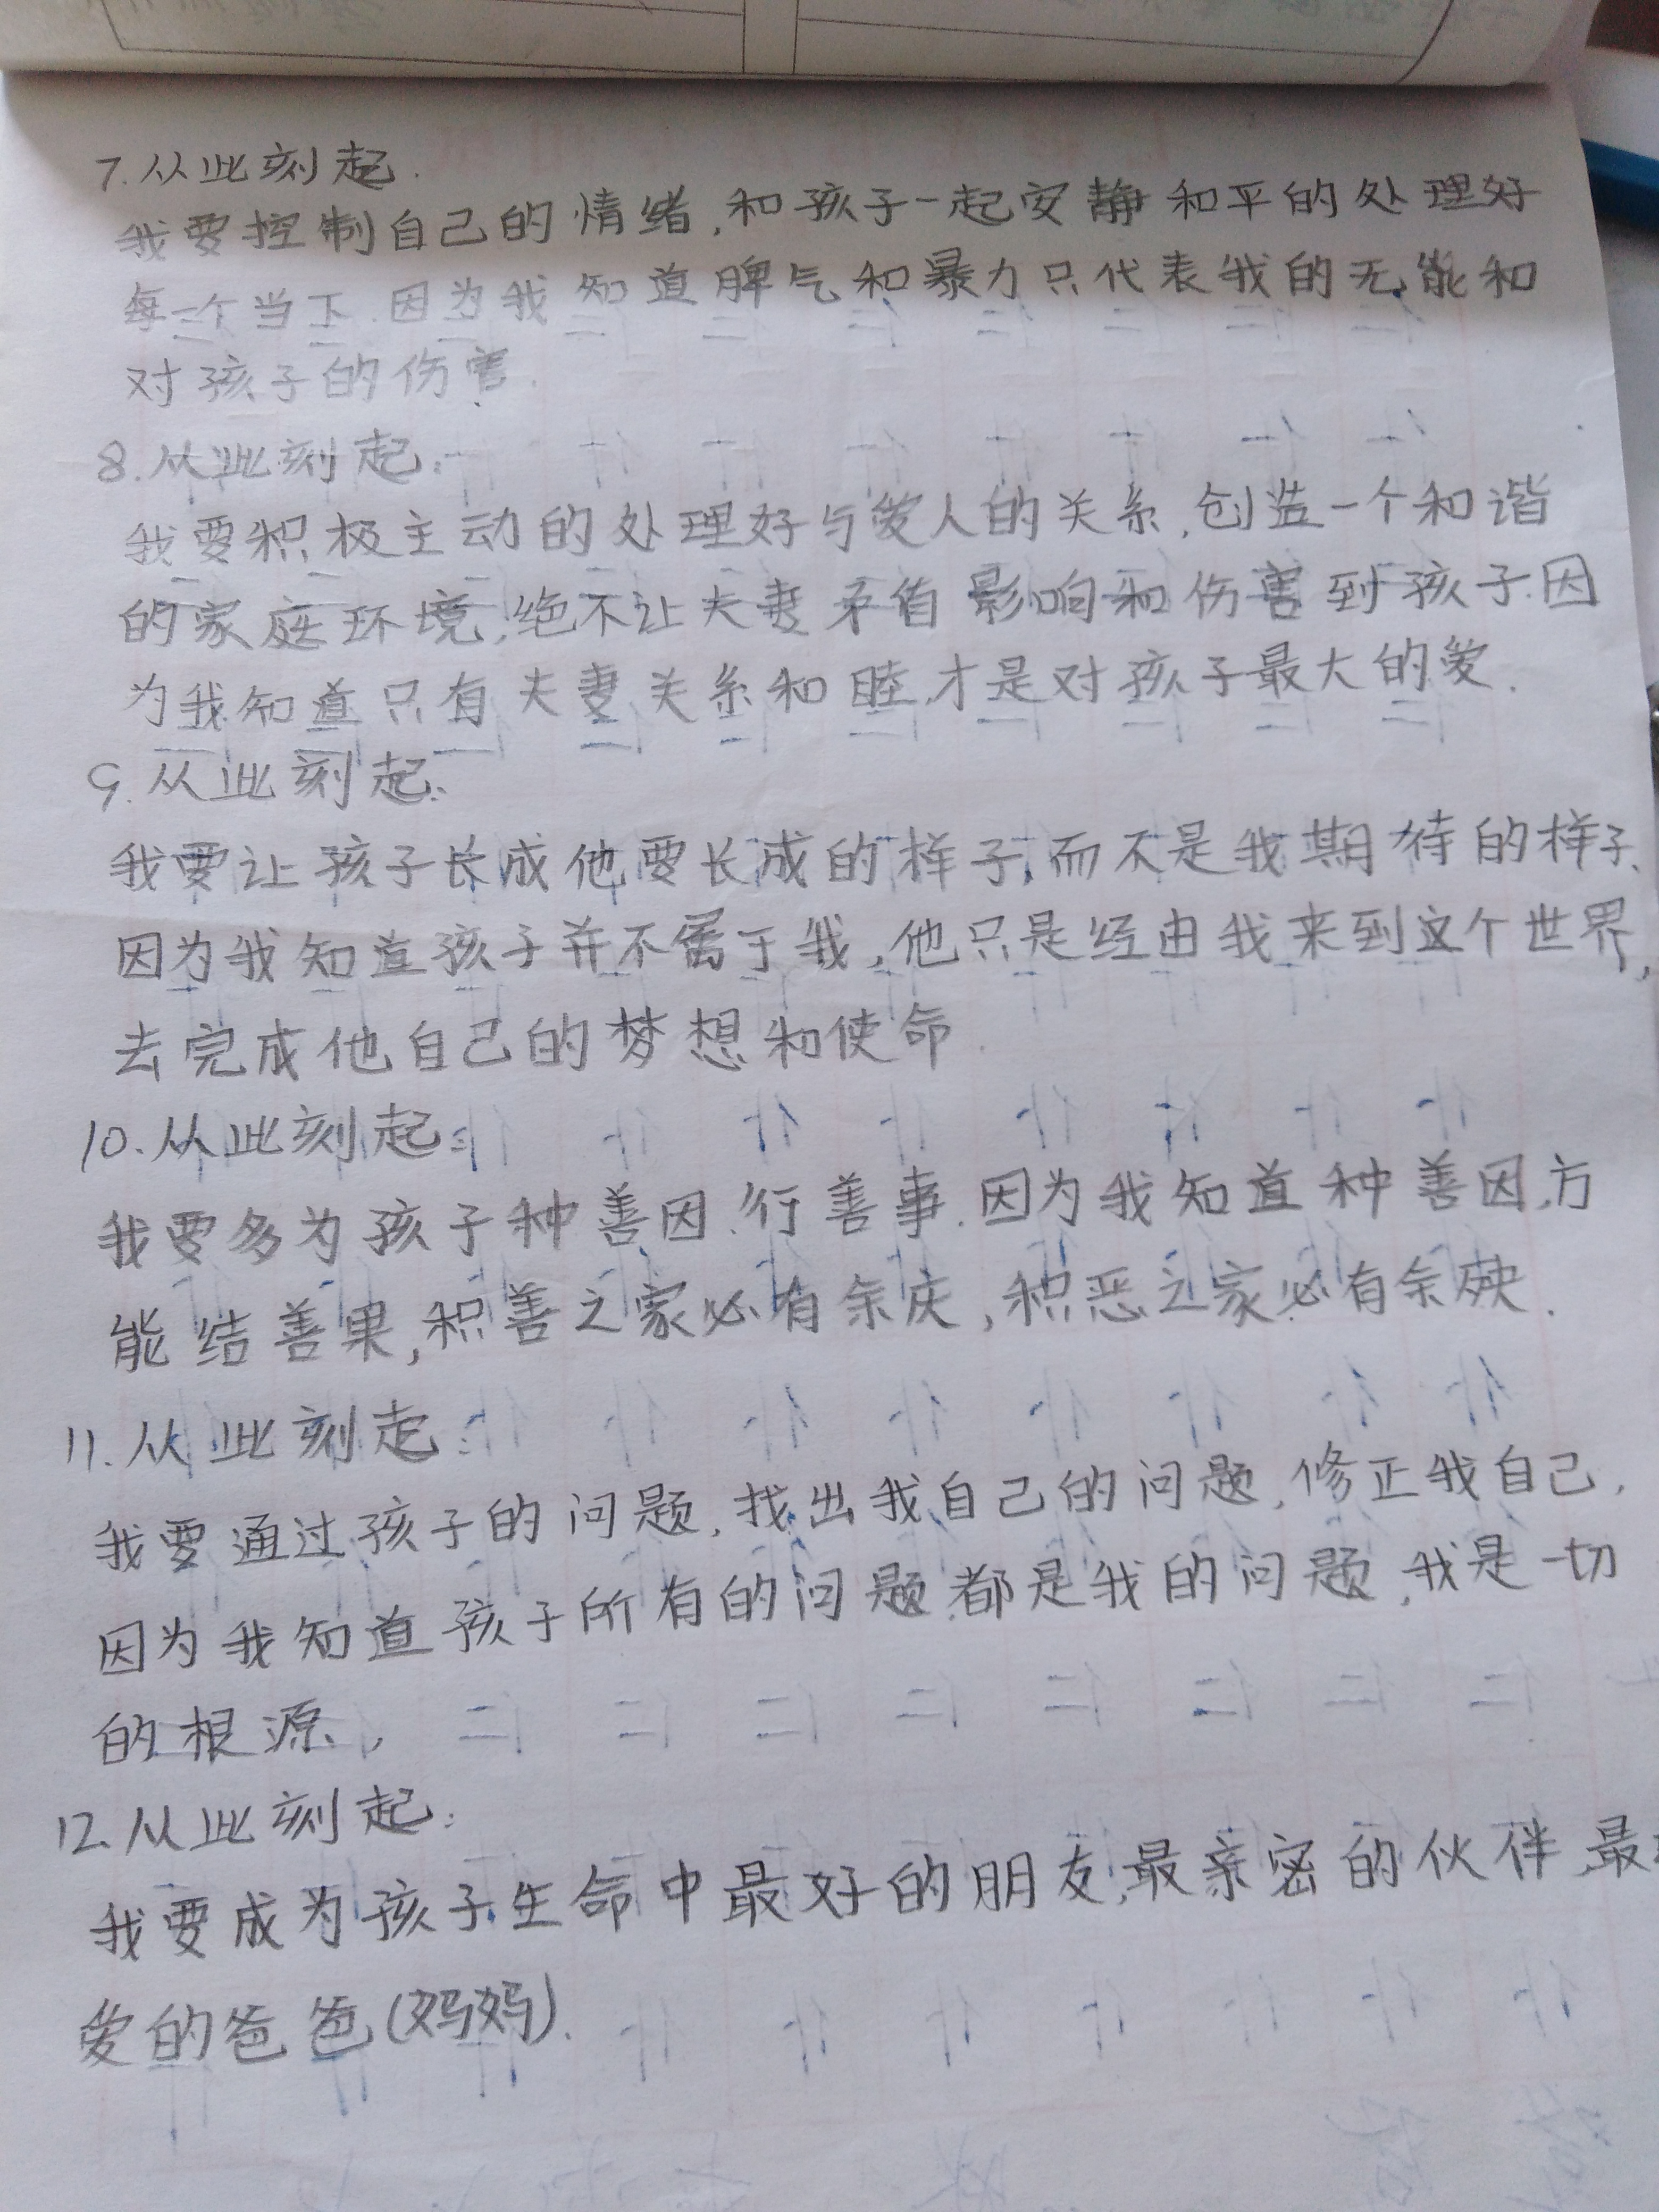 7.从此刻起.
我要控制自己的情绪,和孩子一起安静和平的处理好
每一个当下.因为我知道脾气和暴力只代表我的无能和
对孩子的伤害.
8.从此刻起:
我要积极主动的处理好与爱人的关系,创造一个和谐
的家庭环境,绝不让夫妻矛盾影响和伤害到孩子.因
为我知道只有夫妻关系和睦,才是对孩子最大的爱.
9.从此刻起:
我要让孩子长成他要长成的样子,而不是我期待的样子.
因为我知道孩子并不属于我,他只是经由我来到这个世界,
去完成他自己的梦想和使命.
10.从此刻起:
我要多为孩子种善因.行善事.因为我知道种善因,方
能结善果,积善之家必有余庆,积恶之家必有余殃.
11.从此刻起:
我要通过孩子的问题,找出我自己的问题,修正我自己,
因为我知道孩子所有的问题.都是我的问题,我是一切
的根源,
12.从此刻起:
我要成为孩子生命中最好的朋友,最亲密的伙伴,最
爱的爸爸(妈妈).